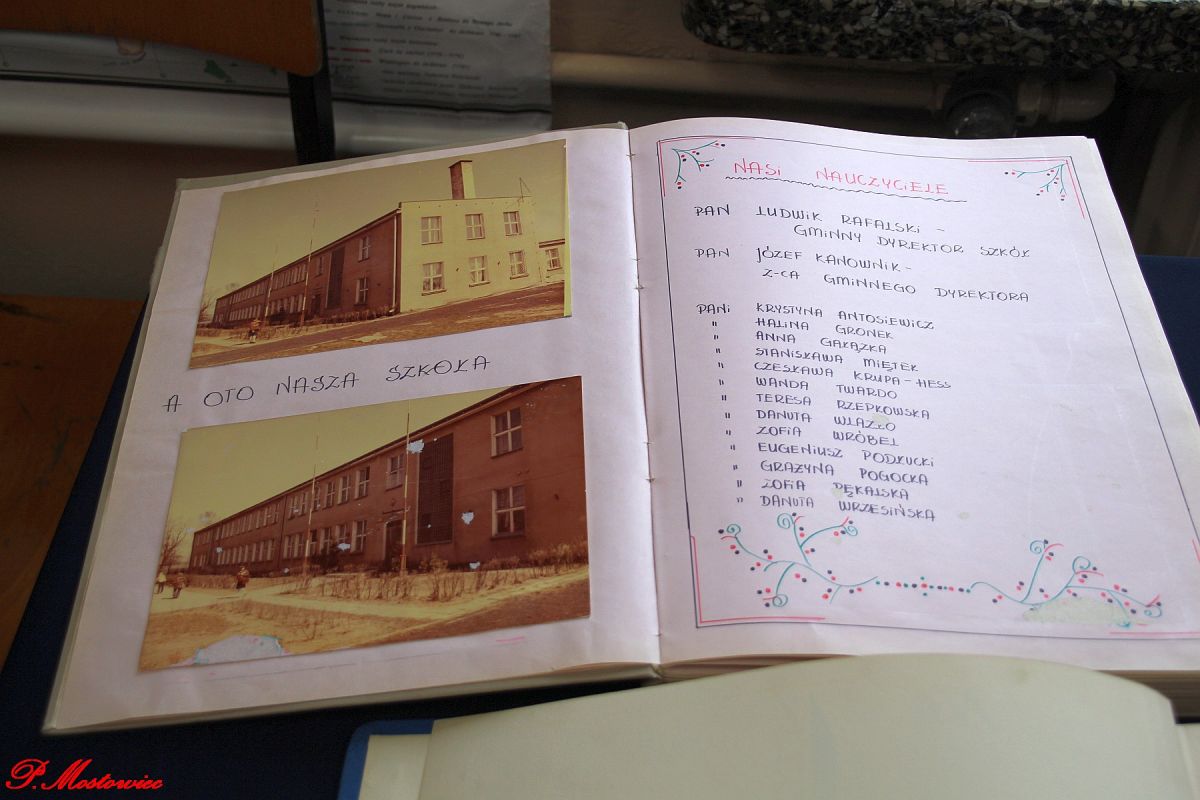 A OTO NASZA SZKOŁA
NASI NAUCZYCIELE
PAN LUDWIK RAFALSKI -
GMINNY DYREKTOR SZKÓŁ
PAN JÓZEF KANOWNIK -
Z-CA GMINNEGO DYREKTORA
PANI KRYSTYNA ANTOSIEWICZ
" HALINA GRONEK
" ANNA GAŁĄZKA
" STANISŁAWA MIĘTEK
" CZESŁAWA KRUPA-HESS
" WANDA TWARDO
" TERESA RZEPKOWSKA
" DANUTA WLAZŁO
" ZOFIA WRÓBEL
" EUGENIUSZ PODŁUCKI
" GRAŻYNA POGOCKA
" ZOFIA PĘKALSKA
" DANUTA WRZESIŃSKA
P. Mostowiec